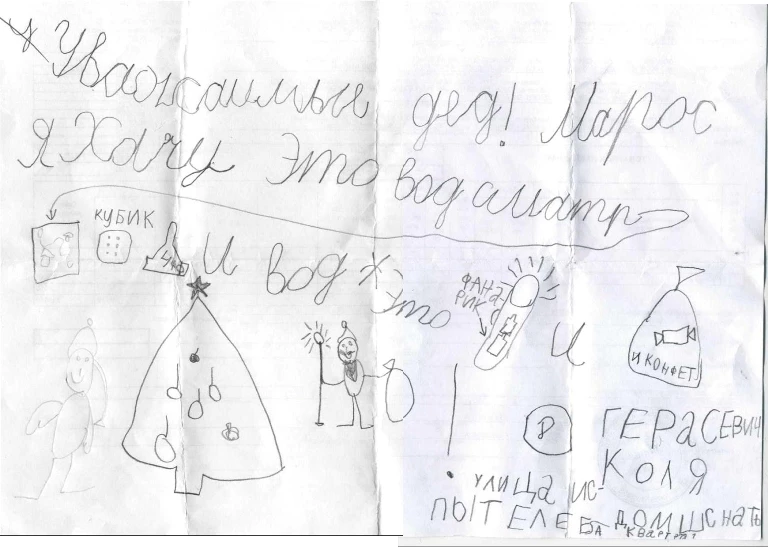 Уважаимые дед! Марос
я Хачу это вод сматр
кубик
и вод это
фана-
рик
и
и конфет
Герасевич
Коля
улица ис-
пытеле
дом шснать
квартт